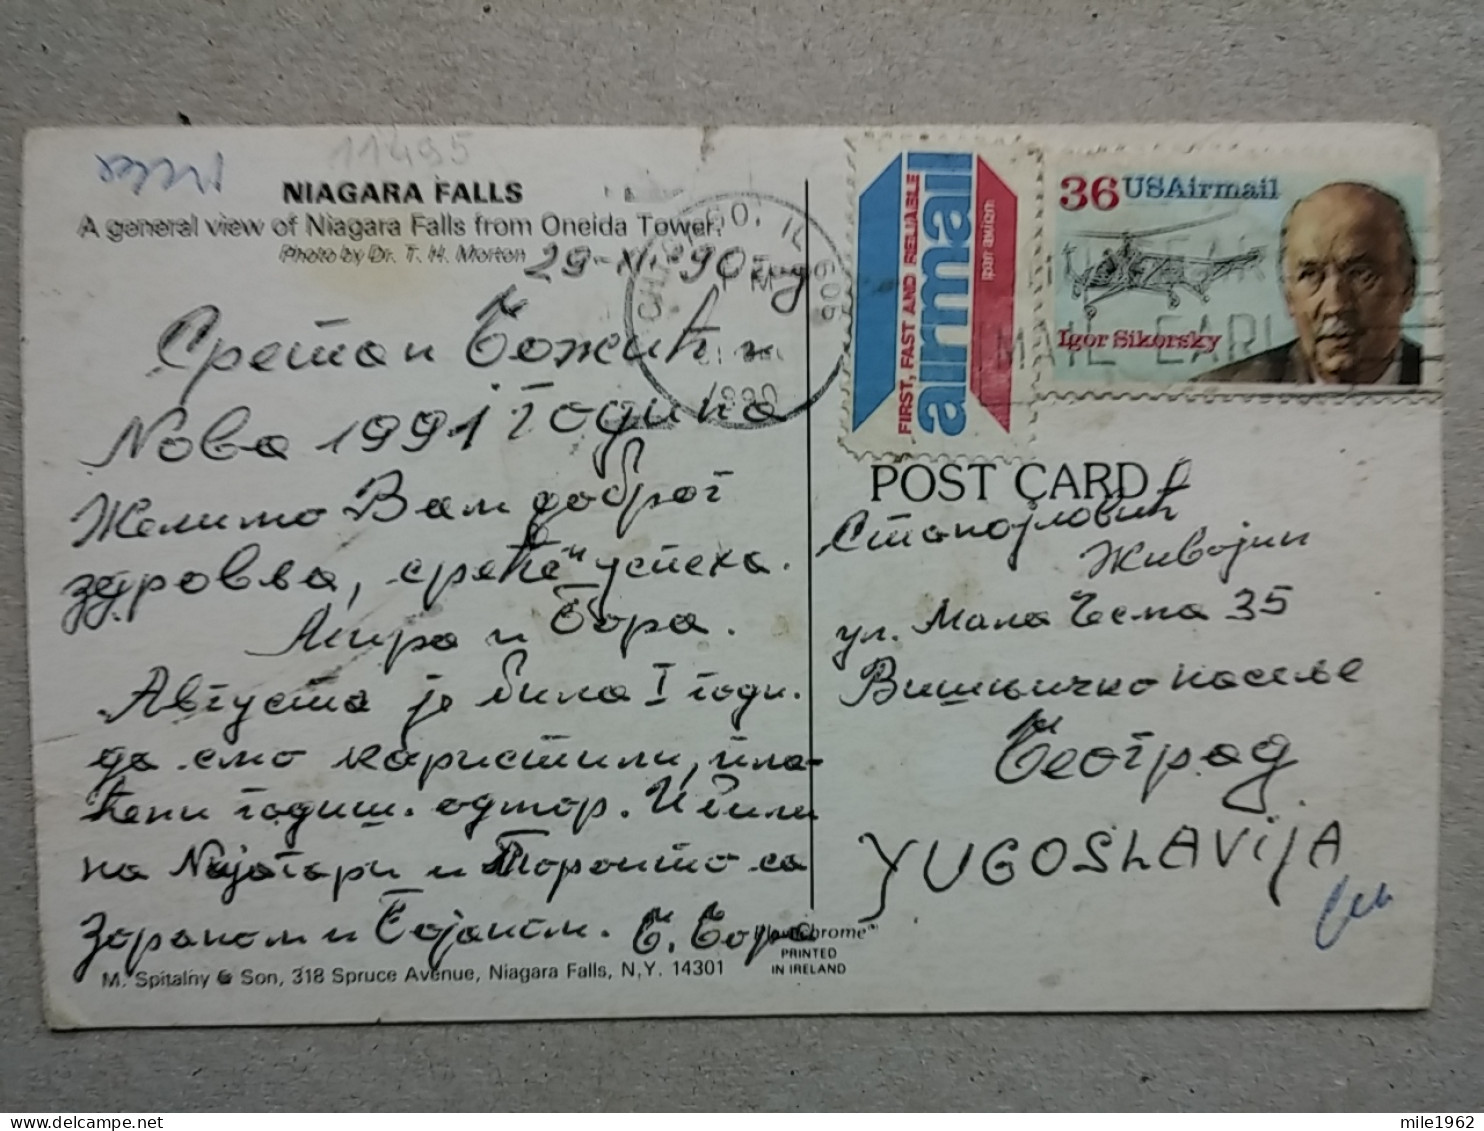 11495
NIAGARA FALLS
A general view of Niagara Falls from Oneida Tower.
Photo by Dr. T. H. Morton
29-XI-90
Сретан Божић и
Нова 1991 година
Желимо Вам доброг
здровва, среће и успеха.
Мира и Бора.
Августа је била I годи.
да смо користили, пла-
ћени годиш. одмор. И били
на Nијагари и Торонто са
Зораном и Бојаном. Б. Бора
M. Spitalny & Son, 318 Spruce Avenue, Niagara Falls, N.Y. 14301
PlastiChrome
PRINTED
IN IRELAND
CHICAGO, IL 606
PM
1990
FIRST, FAST AND RELIABLE
airmail
par avion
36 USAirmail
Igor Sikorsky
MAIL EARLY
POST CARD
Станојловић
Живојин
ул. Мала Чесма 35
Вишњичко насеље
Београд
YUGOSLAVIJA
mile1962